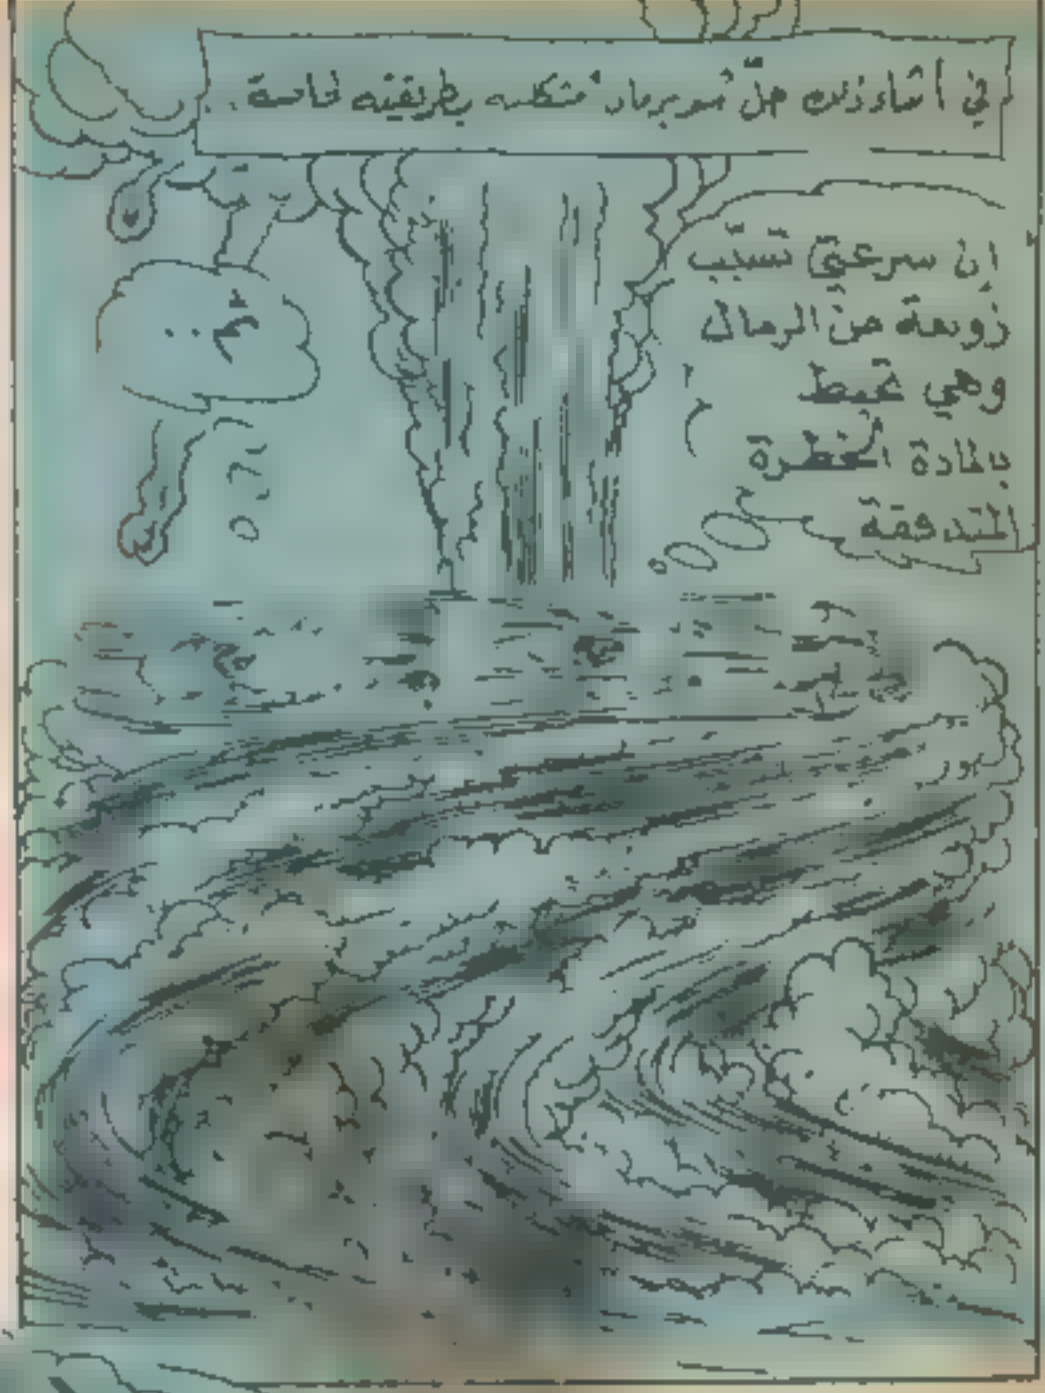 في أثناء ذلك حلّ سوبرمان مشكلته بطريقته الخاصة..
ان سرعتي تسبّب
زوبعة من الرمال
وهي تحيط
بالمادة الخطرة
المتدفقة